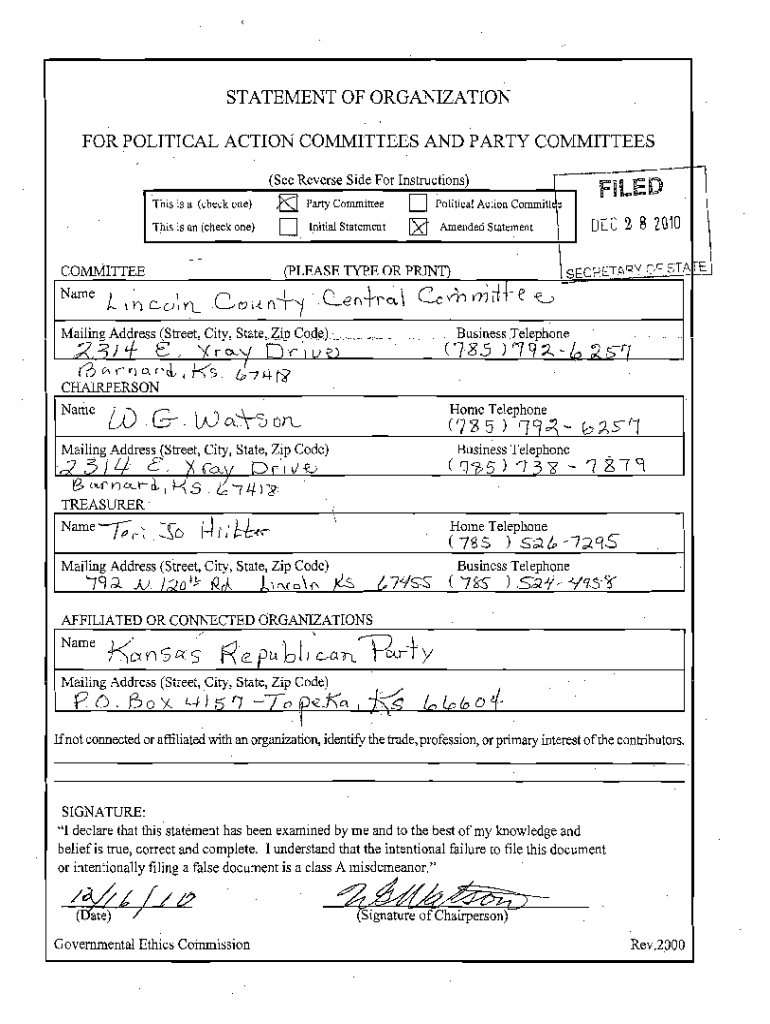 STATEMENT OF ORGANIZATION
FOR POLITICAL ACTION COMMITTEES AND PARTY COMMITTEES
(See Reverse Side For Instructions)
This is a (check one) Party Committee Political Action Committee
This is an (check one) Initial Statement Amended Statement
FILED
DEC 28 2010
SECRETARY OF STATE
COMMITTEE (PLEASE TYPE OR PRINT)
Name Lincoln County Central Committee
Mailing Address (Street, City, State, Zip Code) Business Telephone
2314 E. Xray Drive (785) 792-6257
Barnard, Ks. 67418
CHAIRPERSON
Name W. G. Watson Home Telephone
(785) 792-6257
Mailing Address (Street, City, State, Zip Code) Business Telephone
2314 E. Xray Drive (785) 738-7879
Barnard, KS. 67418
TREASURER
Name Teri Jo Home Telephone
(785) 526-7295
Mailing Address (Street, City, State, Zip Code) Business Telephone
792 N. 120th Rd Lincoln KS 67455 (785) 524-4958
AFFILIATED OR CONNECTED ORGANIZATIONS
Name Kansas Republican Party
Mailing Address (Street, City, State, Zip Code)
P.O. Box 4157 - Topeka, KS 66604
If not connected or affiliated with an organization, identify the trade, profession, or primary interest of the contributors.
SIGNATURE:
"I declare that this statement has been examined by me and to the best of my knowledge and
belief is true, correct and complete. I understand that the intentional failure to file this document
or intentionally filing a false document is a class A misdemeanor."
12/16/10 WGWatson
(Date) (Signature of Chairperson)
Governmental Ethics Commission Rev.2000